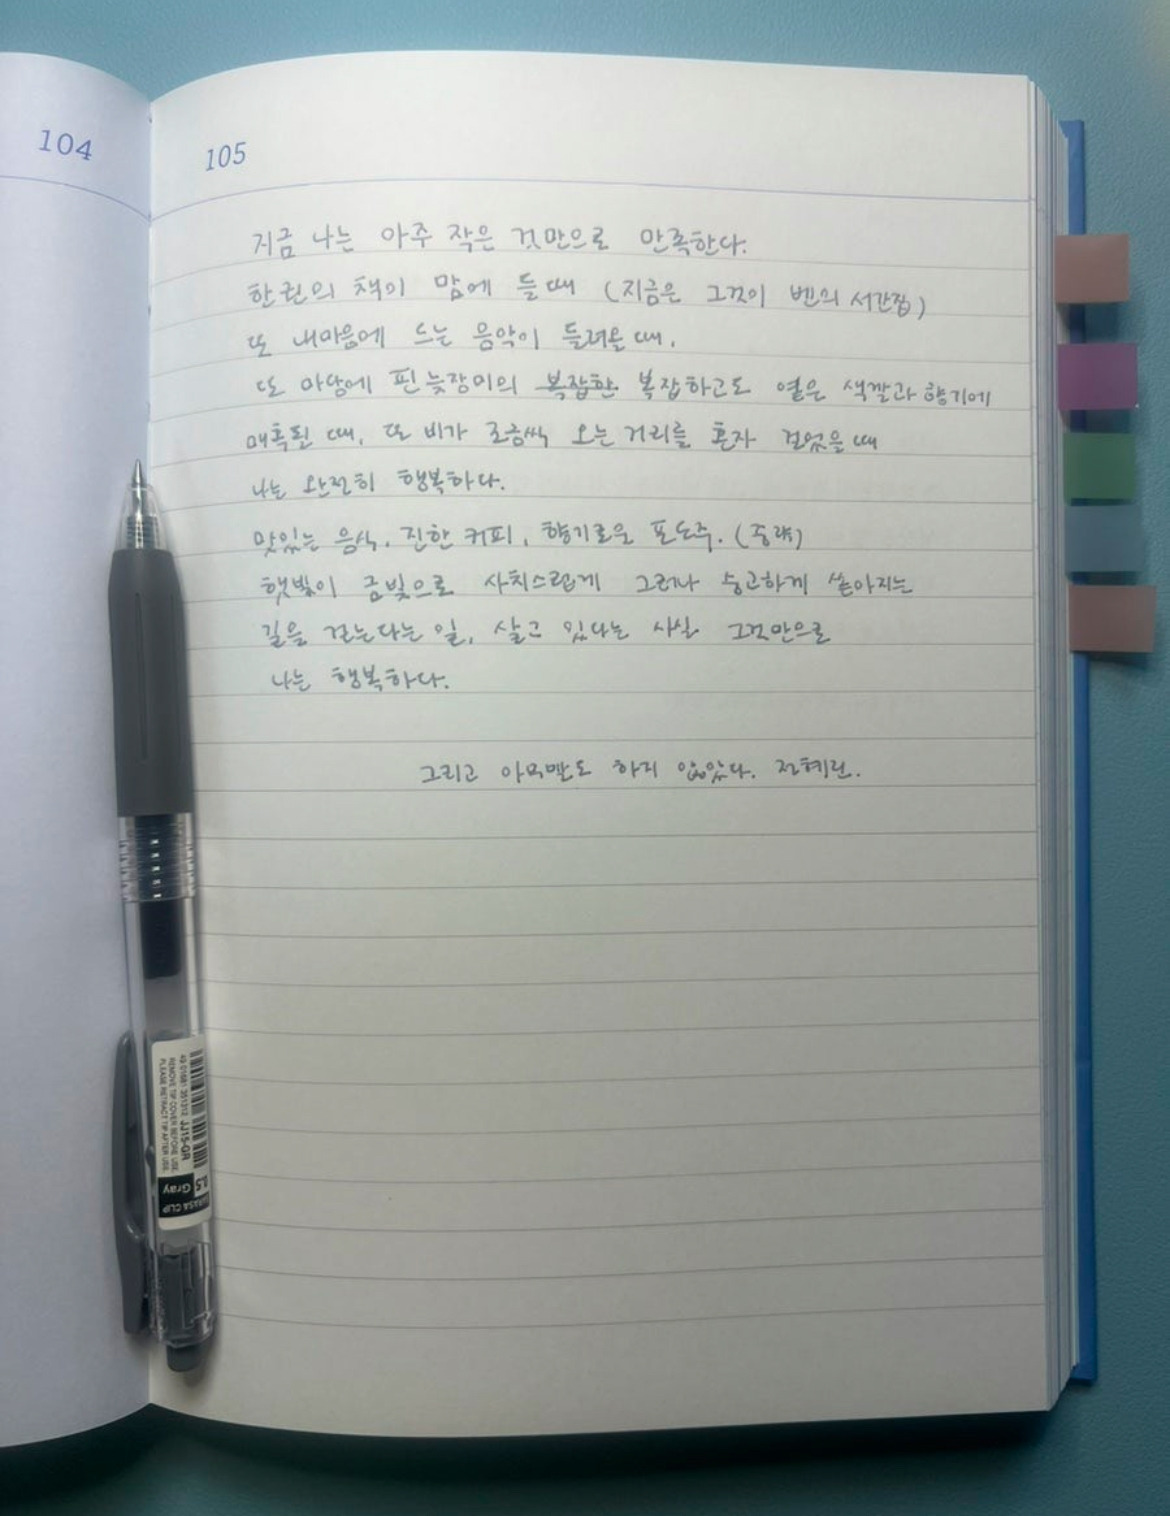 104
105
지금 나는 아주 작은 것만으로 만족한다.
한권의 책이 맘에 들 때 (지금은 그것이 벤의 서간집)
또 내마음에 드는 음악이 들려올 때,
또 마당에 핀 늦장미의 복잡한 복잡하고도 옅은 색깔과 향기에
매혹된 때, 또 비가 조금씩 오는 거리를 혼자 걸었을 때
나는 완전히 행복하다.
맛있는 음식, 진한 커피, 향기로운 포도주. (중략)
햇빛이 금빛으로 사치스럽게 그러나 숭고하게 쏟아지는
길을 걷는다는 일, 살고 있다는 사실 그것만으로
나는 행복하다.
그리고 아무말도 하지 않았다. 전혜린.
49 01681 351312 JJ15-GR
REMOVE TIP COVER BEFORE USE.
PLEASE RETRACT TIP AFTER USE.
0.5
Gray
SARASA CLIP